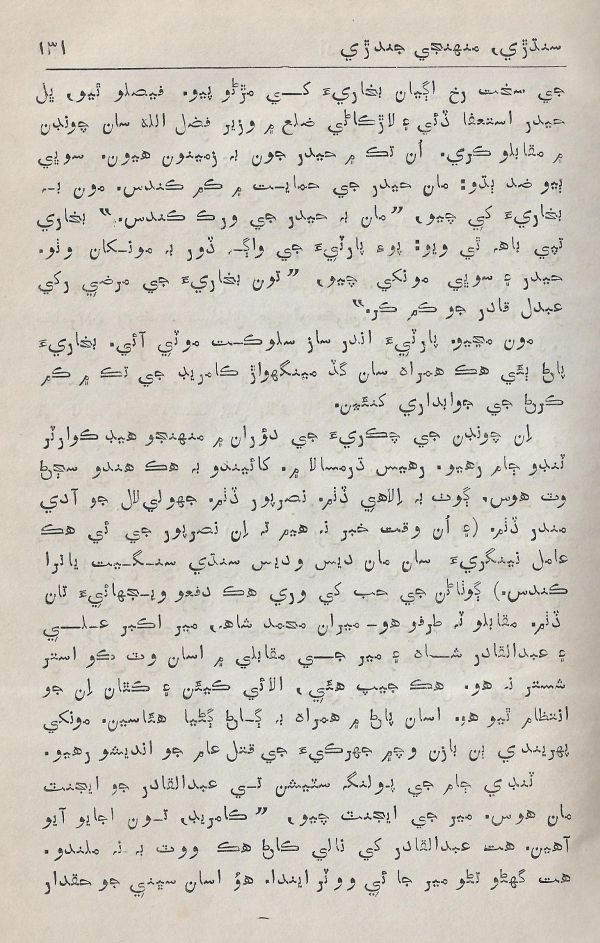 سنڌڙي، منهنجي جندڙي ١٣١
جي سخت رخ اڳيان بخاريءَ کي مڙڻو پيو. فيصلو ٿيو، ڀل
حيدر استعفا ڏئي ۽ لاڙڪاڻي ضلع ۾ وزير فضل الله سان چونڊن
۾ مقابلو ڪري. اُن تڪ ۾ حيدر جون بہ زمينون هيون. سوڀي
ٻيو ضد ٻڌو: مان حيدر جي حمايت ۾ ڪم ڪندس. مون بہ
بخاريءَ کي چيو، ”مان بہ حيدر جي ورڪ ڪندس.“ بخاري
تپي باهہ ٿي ويو: پوءِ پارٽيءَ جي واڳہ ڏور بہ مونکان وٺو.
حيدر ۽ سوڀي مونکي چيو، ”تون بخاريءَ جي مرضي رکي
عبدل قادر جو ڪم ڪر.“
مون مڃيو. پارٽيءَ اندر ساز سلوڪت موٽي آئي. بخاريءَ
پاڻ ٻئي هڪ همراه سان گڏ مينگهواڙ ڪامريڊ جي تڪ ۾ ڪم
ڪرڻ جي جوابداري کنئين.
اِن چونڊن جي چڪريءَ جي دؤران ۾ منهنجو هيڊ ڪوارٽر
ٽنڊو ڄام رهيو. رهيس ڌرمسالا ۾. کائيندو بہ هڪ هندو سڄڻ
وٽ هوس. ڳوٺ بہ اِلاهي ڏٺم. نصرپور ڏٺم. جهولي‌لال جو آدي
مندر ڏٺم. (۽ اُن وقت خبر نہ هيم تہ اِن نصرپور جي ئي هڪ
عامل نينگريءَ سان مان ديس وديس سنڌي سنگيت ياترا
ڪندس.) ڳوٺاڻن جي حب کي وري هڪ دفعو ويجهائيءَ تان
ڏٺم. مقابلو ٽہ طرفو هو- ميران محمد شاهہ، مير اڪبر علي
۽ عبدالقادر شاه ۽ مير جي مقابلي ۾ اسان وٽ ڪو استر
شستر نہ هو. هڪ جيپ هئي، الائي ڪيئن ۽ ڪٿان اِن جو
انتظام ٿيو هو. اسان پاڻ ۾ همراه بہ ڳاڻ ڳڻيا هئاسين. مونکي
پهريندي ٻن بازن وچ ۾ جهرڪيءَ جي قتل عام جو انديشو رهيو.
ٽنڊي ڄام جي پولنگ سٽيشن تي عبدالقادر جو ايجنٽ
مان هوس. مير جي ايجنٽ چيو، ”ڪامريڊ، تون اجايو آيو
آهين. هت عبدالقادر کي نالي ڪاڻ هڪ ووٽ بہ نہ ملندو.
هت گهڻو تڻو مير جا ئي ووٽر ايندا. هؤ اسان سڀني جو حقدار